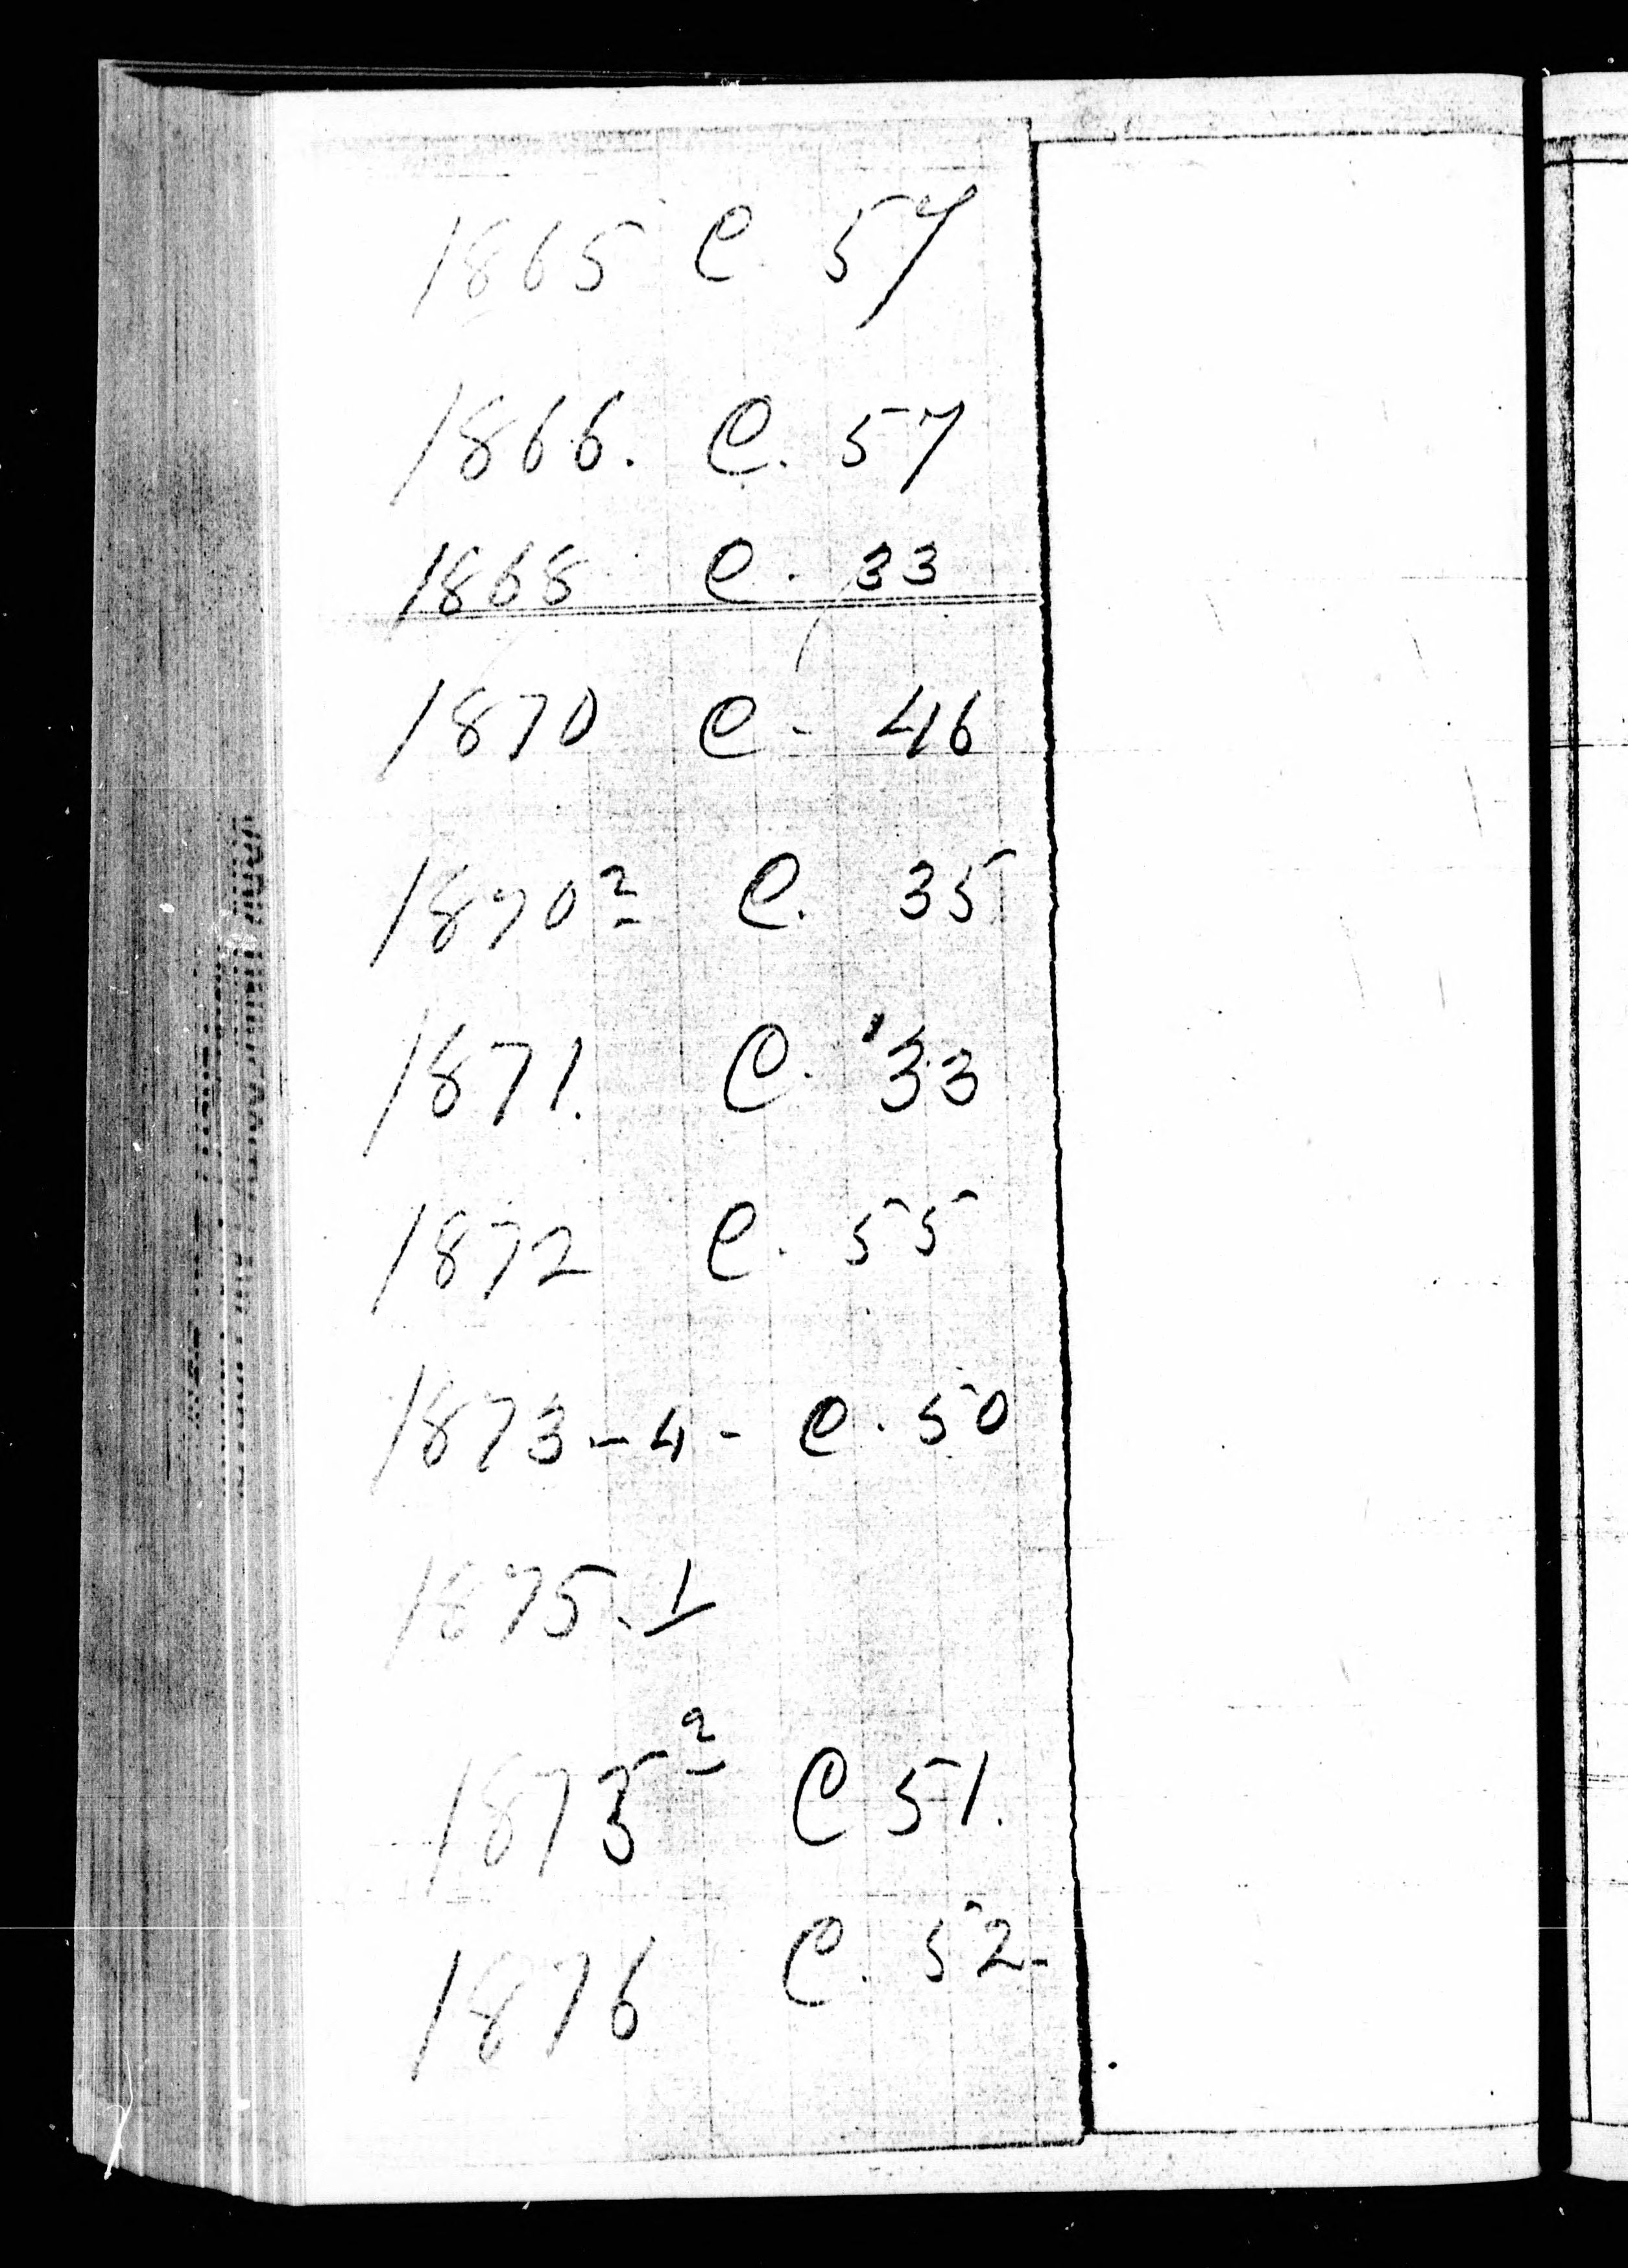 1865 C. 57
1866. C. 57
1868 C. 33
1870 C. 46
1870² C. 35
1871. C. 33
1872 C. 55
1873-4- C. 50
1875.1
1875² C 51.
1876 C. 52